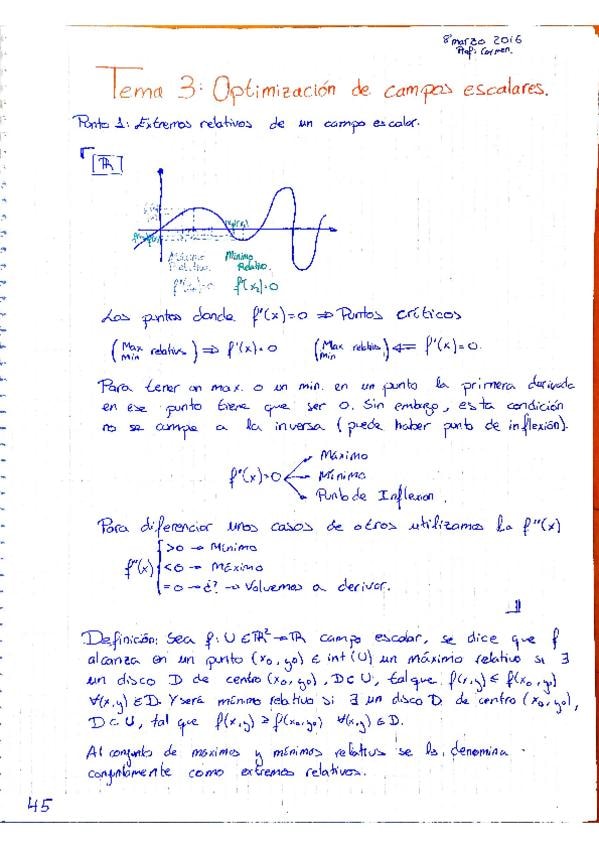 8 marzo 2016
Prof: Carmen.
Tema 3: Optimización de campos escalares.
Punto 1: Extremos relativos de un campo escalar.
[ℝ]
Máximo Mínimo
Relativo. Relativo.
f'(x₁)=0 f'(x₂)=0
Los puntos donde f'(x)=0 ⇒ Puntos críticos
(Max Min relativo) ⇒ f'(x)=0 (Max Min relativo) ⇍ f'(x)=0.
Para tener un max. o un min. en un punto la primera derivada
en ese punto tiene que ser 0. Sin embargo, esta condición
no se cumpe a la inversa (puede haber punto de inflexión).
Máximo
f'(x)=0 Mínimo
Punto de Inflexion.
Para diferenciar unos casos de otros utilizamos la f''(x)
>0 → Mínimo
f''(x) <0 → Máximo
=0 → ¿? → Volvemos a derivar.
Definición: Sea f: U ∈ ℝ² → ℝ campo escalar, se dice que f
alcanza en un punto (x₀, y₀) ∈ int(U) un máximo relativo si ∃
un disco D de centro (x₀, y₀), D⊂U, tal que f(x,y) ≤ f(x₀, y₀)
∀(x,y) ∈ D. Y será mínimo relativo si ∃ un disco D de centro (x₀, y₀),
D⊂U, tal que f(x,y) ≥ f(x₀, y₀) ∀(x,y) ∈ D.
Al conjunto de máximos y mínimos relativos se les denomina
conjuntamente como extremos relativos.
45